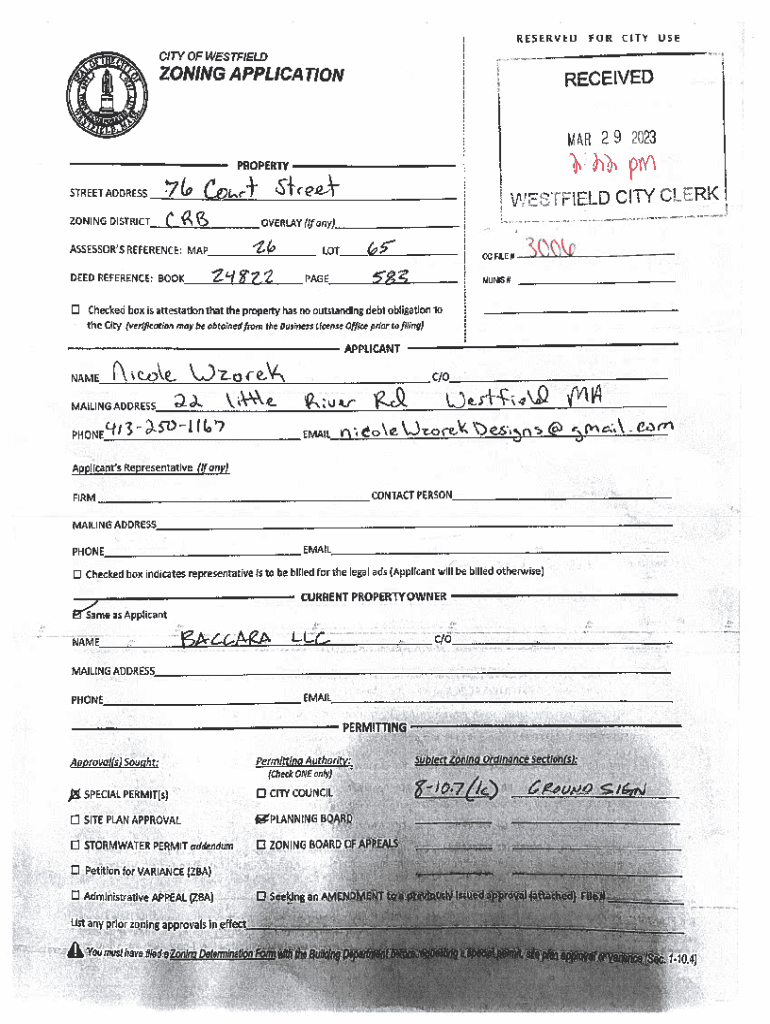 RESERVED FOR CITY USE
CITY OF WESTFIELD
ZONING APPLICATION
RECEIVED
MAR 29 2023
pm
WESTFIELD CITY CLERK
PROPERTY
STREET ADDRESS 76 Court Street
ZONING DISTRICT CRB OVERLAY (if any)
ASSESSOR'S REFERENCE: MAP 26 LOT 65
OC FILE # 3006
DEED REFERENCE: BOOK 24822 PAGE 583
MUNIS #
☐ Checked box is attestation that the property has no outstanding debt obligation to
the City (verification may be obtained from the Business License Office prior to filing)
APPLICANT
NAME Nicole Wzorek C/O
MAILING ADDRESS 22 little River Rd Westfield MA
PHONE 413-250-1167 EMAIL nicoleWzorekDesigns@gmail.com
Applicant's Representative (if any)
FIRM CONTACT PERSON
MAILING ADDRESS
PHONE EMAIL
☐ Checked box indicates representative is to be billed for the legal ads (Applicant will be billed otherwise)
CURRENT PROPERTY OWNER
☑ Same as Applicant
NAME BACCARA LLC C/O
MAILING ADDRESS
PHONE EMAIL
PERMITTING
Approval(s) Sought: Permitting Authority: Subject Zoning Ordinance Section(s):
(Check ONE only)
☒ SPECIAL PERMIT(s) ☐ CITY COUNCIL 8-10.7(1c) GROUND SIGN
☐ SITE PLAN APPROVAL ☒ PLANNING BOARD
☐ STORMWATER PERMIT addendum ☐ ZONING BOARD OF APPEALS
☐ Petition for VARIANCE (ZBA)
☐ Administrative APPEAL (ZBA) ☐ Seeking an AMENDMENT to a previously issued approval (attached) File #
List any prior zoning approvals in effect
You must have filed a Zoning Determination Form with the Building Department before requesting a special permit, site plan approval or variance (Sec. 1-10.4)